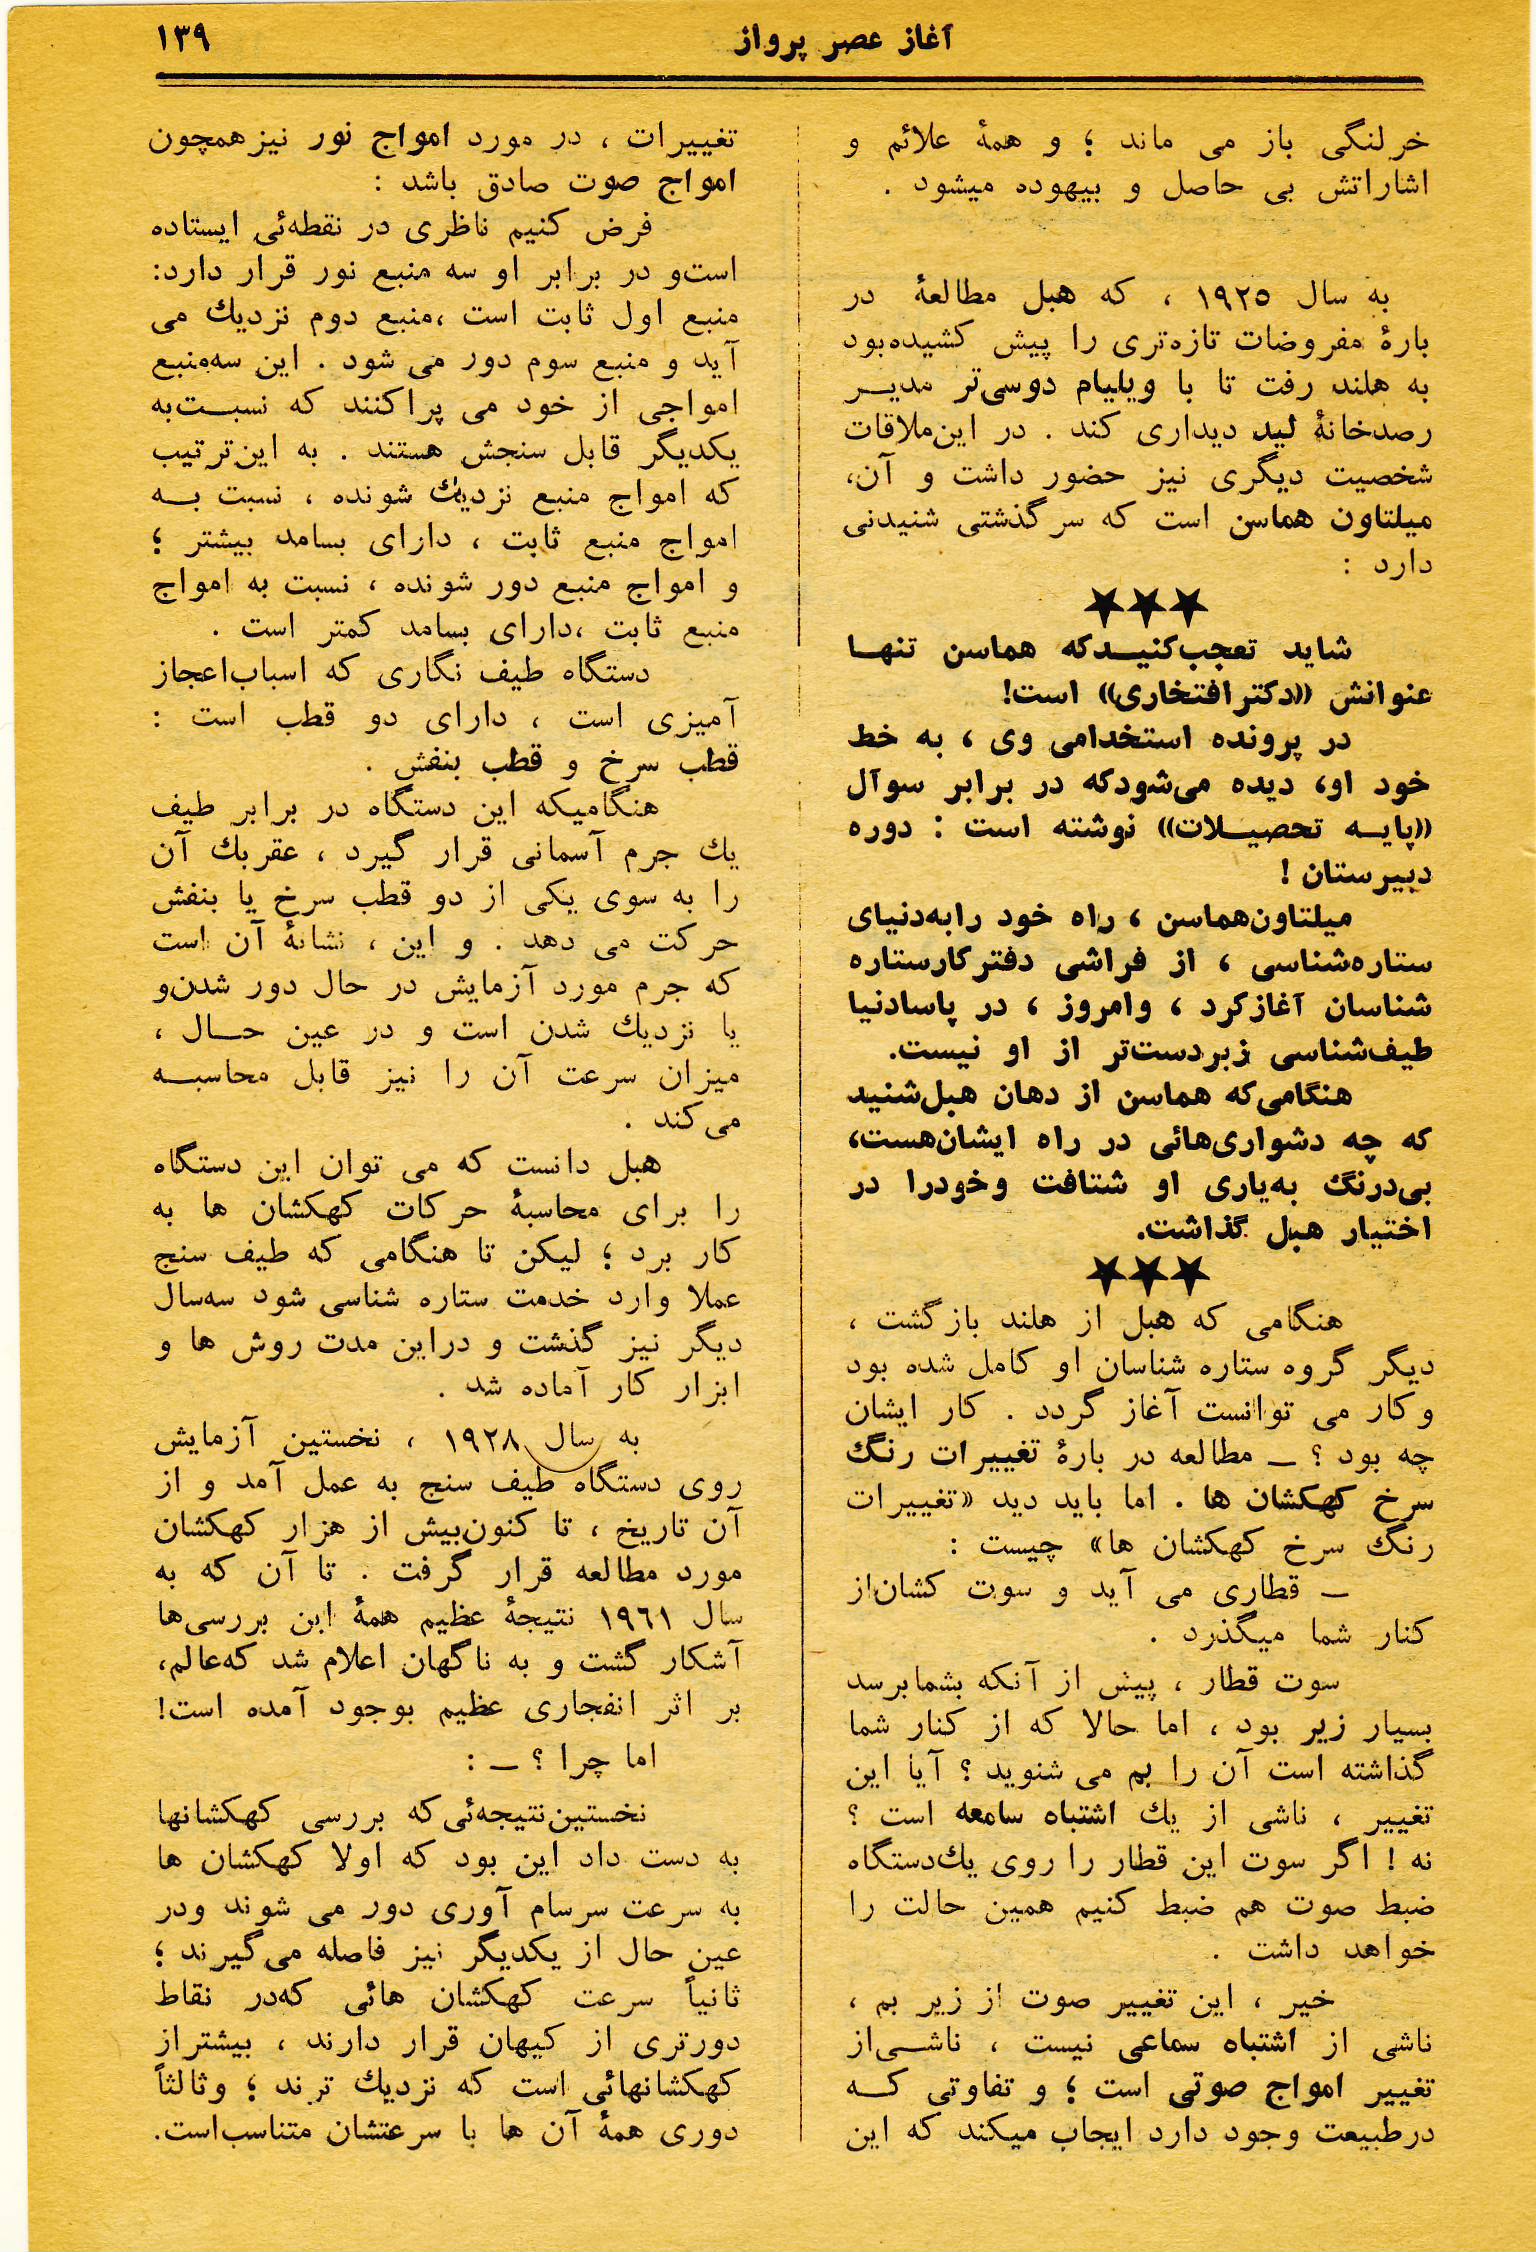 آغاز عصر پرواز
۱۳۹
خرلنگی باز می ماند ؛ و همهٔ علائم و
اشاراتش بی حاصل و بیهوده میشود .
به سال ۱۹۲۵ ، که هبل مطالعهٔ در
بارهٔ مفروضات تازه‌تری را پیش کشیده‌بود
به هلند رفت تا با ویلیام دوسی‌تر مدیـر
رصدخانهٔ لید دیداری کند . در این‌ملاقات
شخصیت دیگری نیز حضور داشت و آن،
میلتاون هماسن است که سرگذشتی شنیدنی
دارد :
★★★
شاید تعجب‌کنیـدکه هماسن تنهـا
عنوانش «دکترافتخاری» است!
در پرونده استخدامی وی ، به خط
خود او، دیده می‌شودکه در برابر سوآل
«پایـه تحصیـلات» نوشته است : دوره
دبیرستان !
میلتاون‌هماسن ، راه خود رابه‌دنیای
ستاره‌شناسی ، از فراشی دفترکارستاره
شناسان آغازکرد ، وامروز ، در پاسادنیا
طیف‌شناسی زبردست‌تر از او نیست.
هنگامی‌که هماسن از دهان هبل‌شنید
که چه دشواری‌هائی در راه ایشان‌هست،
بی‌درنگ به‌یاری او شتافت وخودرا در
اختیار هبل گذاشت.
★★★
هنگامی که هبل از هلند بازگشت ،
دیگر گروه ستاره شناسان او کامل شده بود
وکار می توانست آغاز گردد . کار ایشان
چه بود ؟ ــ مطالعه در بارهٔ تغییرات رنگ
سرخ کهکشان ها . اما باید دید «تغییرات
رنگ سرخ کهکشان ها» چیست :
ــ قطاری می آید و سوت کشان‌از
کنار شما میگذرد .
سوت قطار ، پیش از آنکه بشمابرسد
بسیار زیر بود ، اما حالا که از کنار شما
گذاشته است آن را بم می شنوید ؟ آیا این
تغییر ، ناشی از یك اشتباه سامعه است ؟
نه ! اگر سوت این قطار را روی یك‌دستگاه
ضبط صوت هم ضبط کنیم همین حالت را
خواهد داشت .
خیر ، این تغییر صوت از زیر بم ،
ناشی از اشتباه سماعی نیست ، ناشـی‌از
تغییر امواج صوتی است ؛ و تفاوتی کـه
درطبیعت وجود دارد ایجاب میکند که این
تغییرات ، در مورد امواج نور نیزهمچون
امواج صوت صادق باشد :
فرض کنیم ناظری در نقطه‌ئی ایستاده
است‌و در برابر او سه منبع نور قرار دارد:
منبع اول ثابت است ،منبع دوم نزدیك می
آید و منبع سوم دور می شود . این سه‌منبع
امواجی از خود می پراکنند که نسبـت‌به
یکدیگر قابل سنجش هستند . به این‌ترتیب
که امواج منبع نزدیك شونده ، نسبت بـه
امواج منبع ثابت ، دارای بسامد بیشتر ؛
و امواج منبع دور شونده ، نسبت به امواج
منبع ثابت ،دارای بسامد کمتر است .
دستگاه طیف نگاری که اسباب‌اعجاز
آمیزی است ، دارای دو قطب است :
قطب سرخ و قطب بنفش .
هنگامیکه این دستگاه در برابر طیف
یك جرم آسمانی قرار گیرد ، عقربك آن
را به سوی یکی از دو قطب سرخ یا بنفش
حرکت می دهد . و این ، نشانهٔ آن است
که جرم مورد آزمایش در حال دور شدن‌و
یا نزدیك شدن است و در عین حـال ،
میزان سرعت آن را نیز قابل محاسبـه
می‌کند .
هبل دانست که می توان این دستگاه
را برای محاسبهٔ حرکات کهکشان ها به
کار برد ؛ لیکن تا هنگامی که طیف سنج
عملا وارد خدمت ستاره شناسی شود سه‌سال
دیگر نیز گذشت و دراین مدت روش ها و
ابزار کار آماده شد .
به سال ۱۹۲۸ ، نخستین آزمایش
روی دستگاه طیف سنج به عمل آمد و از
آن تاریخ ، تا کنون‌بیش از هزار کهکشان
مورد مطالعه قرار گرفت . تا آن که به
سال ۱۹٦۱ نتیجهٔ عظیم همهٔ این بررسی‌ها
آشکار گشت و به ناگهان اعلام شد که‌عالم،
بر اثر انفجاری عظیم بوجود آمده است!
اما چرا ؟ ــ :
نخستین‌نتیجه‌ئی‌که بررسی کهکشانها
به دست داد این بود که اولا کهکشان ها
به سرعت سرسام آوری دور می شوند ودر
عین حال از یکدیگر نیز فاصله می‌گیرند ؛
ثانیاً سرعت کهکشان هائی که‌در نقاط
دورتری از کیهان قرار دارند ، بیشتراز
کهکشانهائی است که نزدیك ترند ؛ وثالثاً
دوری همهٔ آن ها با سرعتشان متناسب‌است.